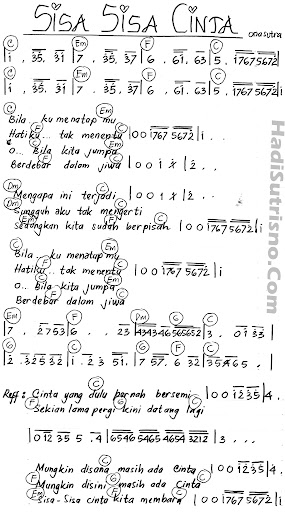 SISA SISA CINTA
ona sutra
C Em F C
i . 35. 31 | 7 . 35. 37 | 6 . 61. 63 | 5 . 1767 5672 |
C Em F C
i . 35. 31 | 7 . 35. 37 | 6 . 61. 63 | 5 . 1767 5672 |
C Em
Bila... ku menatap mu
F C
Hatiku... tak menentu | 0 0 1767 5672 | i .
C Em
o... Bila kita jumpa
F C
Berdebar dalam jiwa | 0 0 1 x | 2 . .
Dm C
Mengapa ini terjadi | 0 0 1 x | 2 . .
Dm Em
Sungguh aku tak mengerti
F C
Sedangkan kita sudah berpisah | 0 0 1767 5672 | i
C Em
Bila... ku menatap mu
F C
Hatiku... tak menentu | 0 0 1767 5672 | i .
C Em
o... Bila kita jumpa
F C
Berdebar dalam jiwa
Em F Dm G C
7 . 2753 | 6 . . 23 | 4343 46 565652 | 3 . 0133 |
G C G F C
2 . 32532 | 1 . 23 51. | 7 57. 632 | 35465 . . |
C F
Reff : Cinta yang dulu pernah bersemi | 0 0 1235 | 4 .
G C
Sekian lama pergi kini datang lagi
| 012 35 5 . 4 | 6546 5465 4654 3212 | 3 . . .
C F
Mungkin disana masih ada cinta | 0 0 1235 | 4 .
F G C
Mungkin disini masih ada cinta
Em F C
Sisa-Sisa cinta kita membara | 0 0 1767 5672 | i
HadiSutrisno.Com